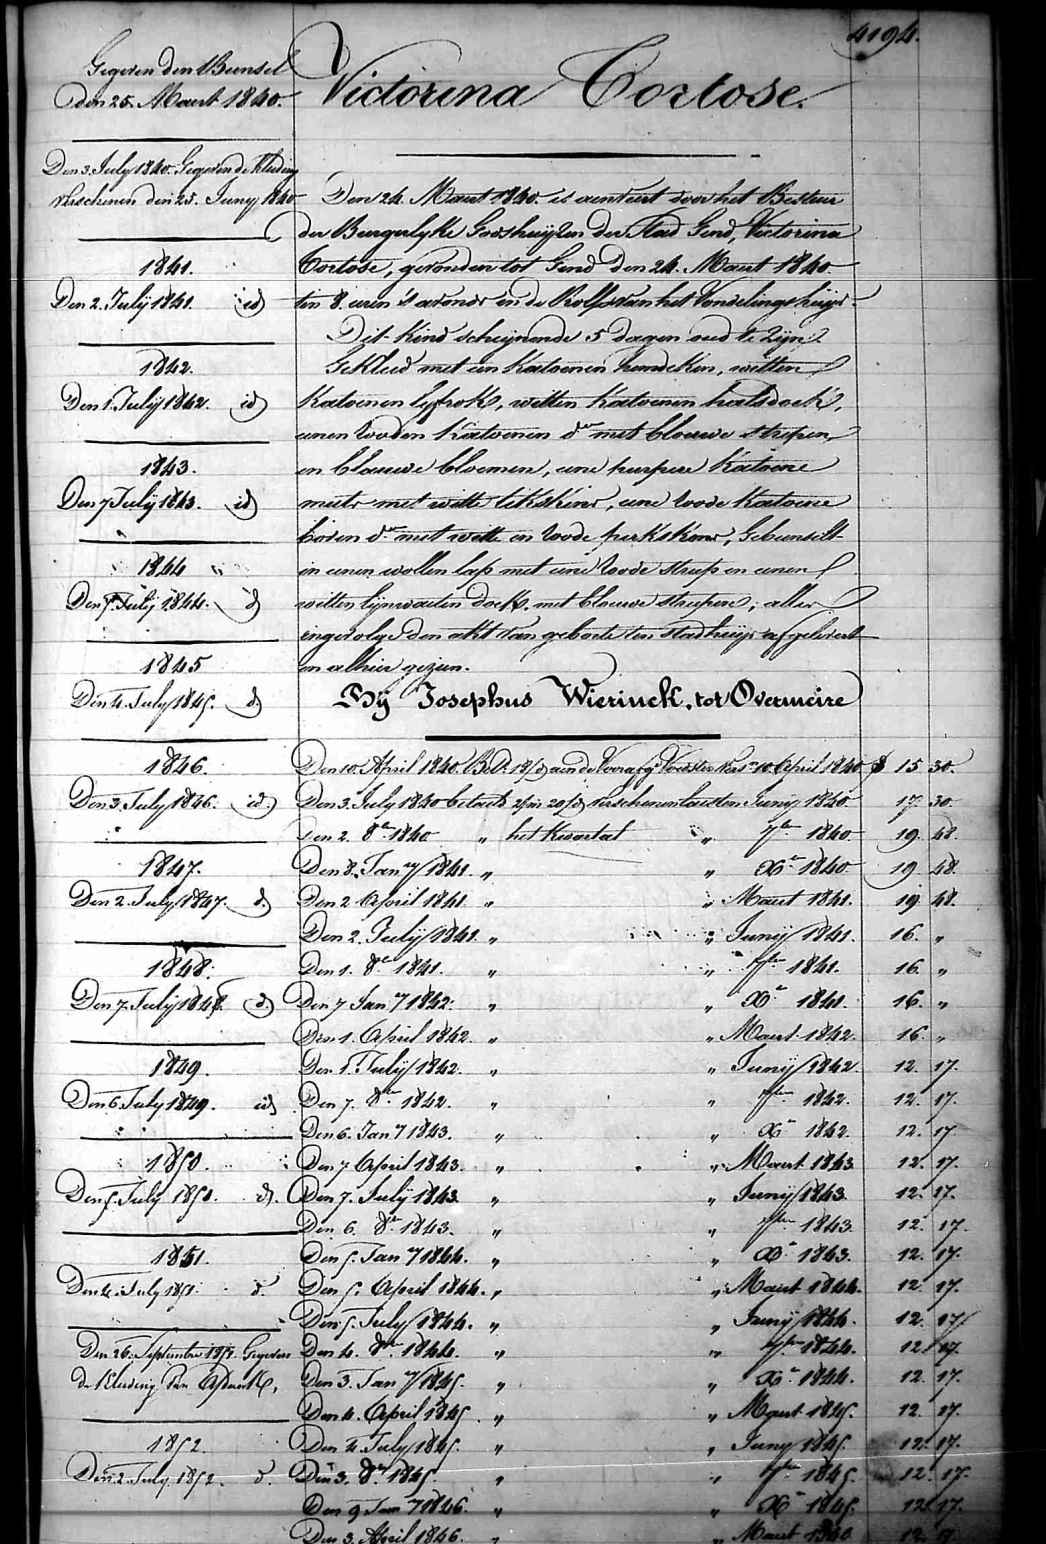 4194.
Gegeven den Bunsel
den 25. Maert 1840.
Victorina Cortose.
Den 3. July 1840. Gegeven de Kleeding
verschenen den 25. Juny 1840
1841.
Den 2. July 1841. id
1842.
Den 1. July 1842. id
1843.
Den 7 July 1843. id
1844
Den 5. July 1844. d
1845
Den 4. July 1845. d
1846.
Den 3. July 1846. id
1847.
Den 2. July 1847. d
1848.
Den 7. July 1848. d
1849.
Den 6. July 1849. id
1850.
Den 5. July 1850. d.
1851.
Den 4. July 1851. d.
Den 26. September 1851. Gegeven
de Kleeding van
1852
Den 2. July 1852. d.
Den 24. Maert 1840. is aenveert voor het Bestuur
der Burgerlyke Godshuyzen der Stad Gend, Victorina
Cortose, gevonden tot Gend den 24. Maert 1840.
ten 8. uren 's avonds in de Rolle van het Vondelingshuys
Dit kind schynende 5 dagen oud te zyn
Gekleed met een Katoenen hemdeken, witten
Katoenen lyfrok, witten Katoenen halsdoek,
eenen rooden Katoenen do. met blauwe strepen
en blauwe bloemen, eene purpere Katoene
muts met witte, eene roode Katoene
boven do. met witte en roode perkskens, Gebunselt
in eenen wollen lap met eene roode streep en eenen
witten lynwaeten doek, met blauwe streepen; alles
ingevolge den akt van geboorte ten stadhuys afgelevert
en alhier gezien.
By Josephus Wierinck, tot Overmeire
Den 10. April 1840. 10 April 1840 15 30.
Den 3. July 1840 betaelt verschenen laesten Juny 1840 17 30
den 2. 8er 1840 " het Kwartael " 7ber 1840 19. 48.
Den 8. Jany 1841. " " Xr 1840 19. 48.
Den 2 April 1841. " " Maert 1841. 19. 48.
Den 2. July 1841. " " Juny 1841. 16. "
Den 1. 8er 1841. " " 7ber 1841. 16. "
Den 7 Jany 1842. " " Xr 1841. 16. "
Den 1. April 1842. " " Maert 1842. 16. "
Den 1. July 1842. " " Juny 1842 12. 17.
Den 7. 8er 1842. " " 7ber 1842. 12. 17.
Den 6. Jany 1843. " " Xr 1842. 12. 17.
Den 7 April 1843. " " Maert 1843 12. 17.
Den 7. July 1843. " " Juny 1843. 12. 17.
Den 6. 8er 1843. " " 7ber 1843 12. 17.
Den 5. Jany 1844. " " Xr 1843. 12. 17.
Den 5. April 1844. " " Maert 1844. 12. 17.
Den 5. July 1844. " " Juny 1844. 12. 17
Den 4. 8er 1844. " " 7ber 1844. 12. 17.
Den 3. Jany 1845. " " Xr 1844. 12. 17.
Den 4. April 1845. " " Maert 1845. 12. 17.
Den 4. July 1845. " " Juny 1845. 12. 17.
Den 3. 8er 1845. " " 7ber 1845. 12. 17.
Den 9 Jany 1846. " " Xr 1845. 12. 17.
Den 3. April 1846. " " Maert 1846 12. 17.